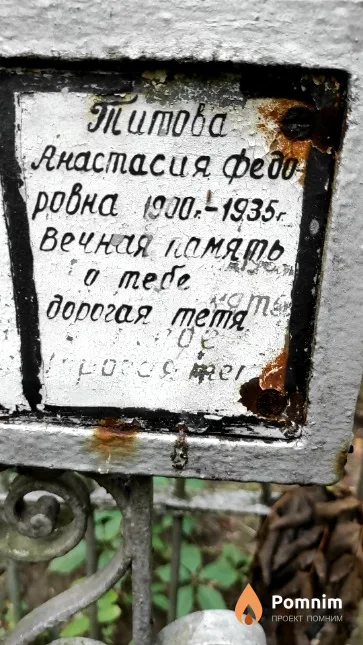 Титова
Анастасия Федо-
ровна 1900г.-1935г.
Вечная память
о тебе
дорогая тетя
Pomnim
ПРОЕКТ ПОМНИМ